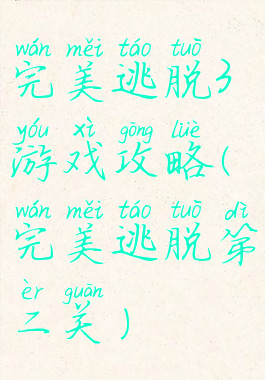 wán měi táo tuō
完美逃脱3
yóu xì gōng lüè
游戏攻略(
wán měi táo tuō dì
完美逃脱第
èr guān
二关)